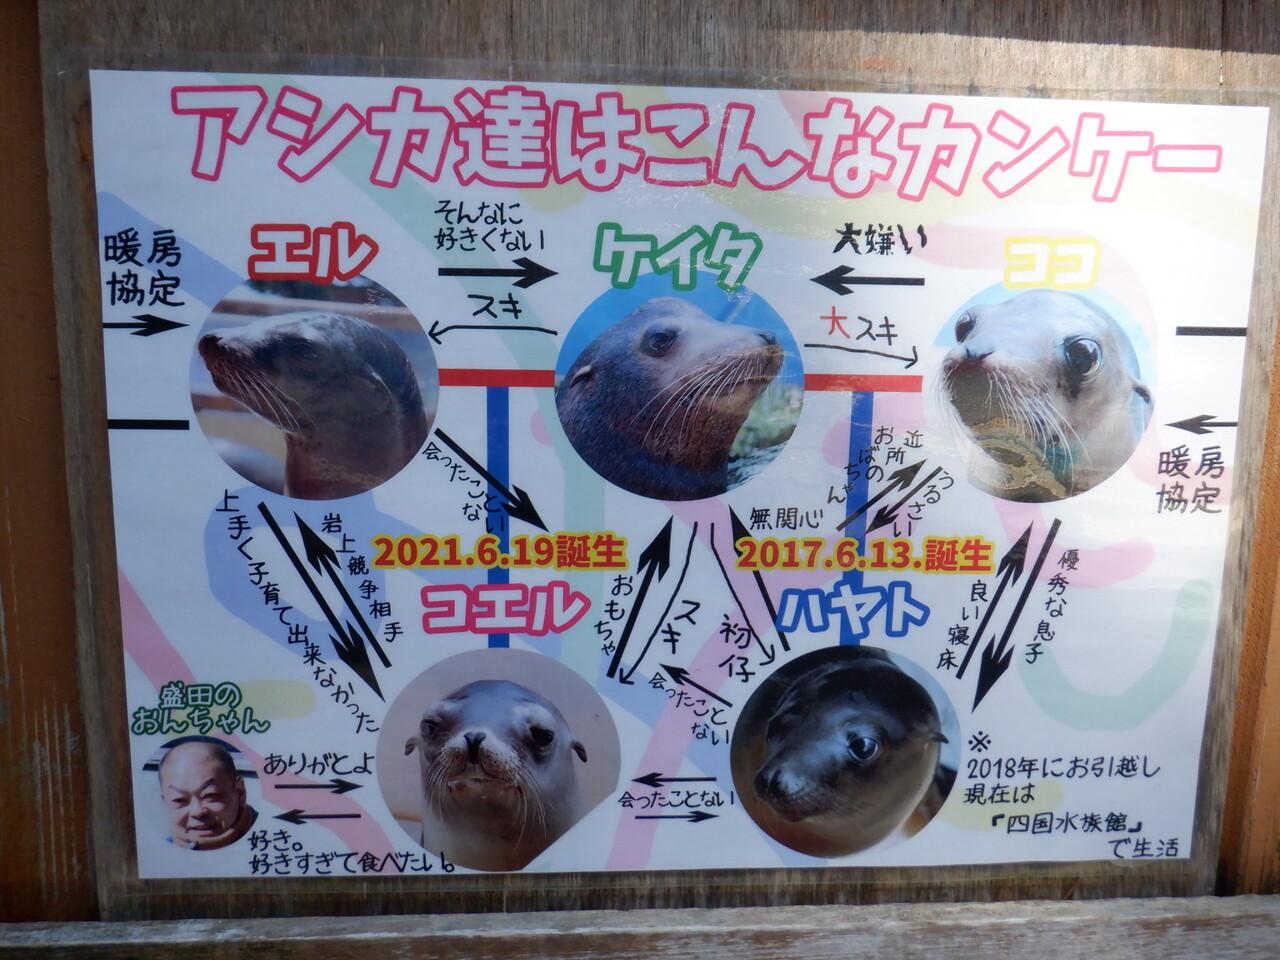 アシカ達はこんなカンケー
暖房
協定
エル
そんなに
好きくない
スキ
ケイタ
大嫌い
大スキ
ココ
暖房
協定
会ったことい
ない
近所
おばの
ちゃん
うるさい
無関心
2021.6.19誕生
2017.6.13.誕生
コエル
ハヤト
上手く子育て出来なかった
岩上競争相手
おもちゃ
スキ
初仔
会ったこと
ない
良い寝床
優秀な息子
盛田の
おんちゃん
ありがとよ
好き。
好きすぎて食べたい。
会ったことない
※
2018年にお引越し
現在は
「四国水族館」
で生活